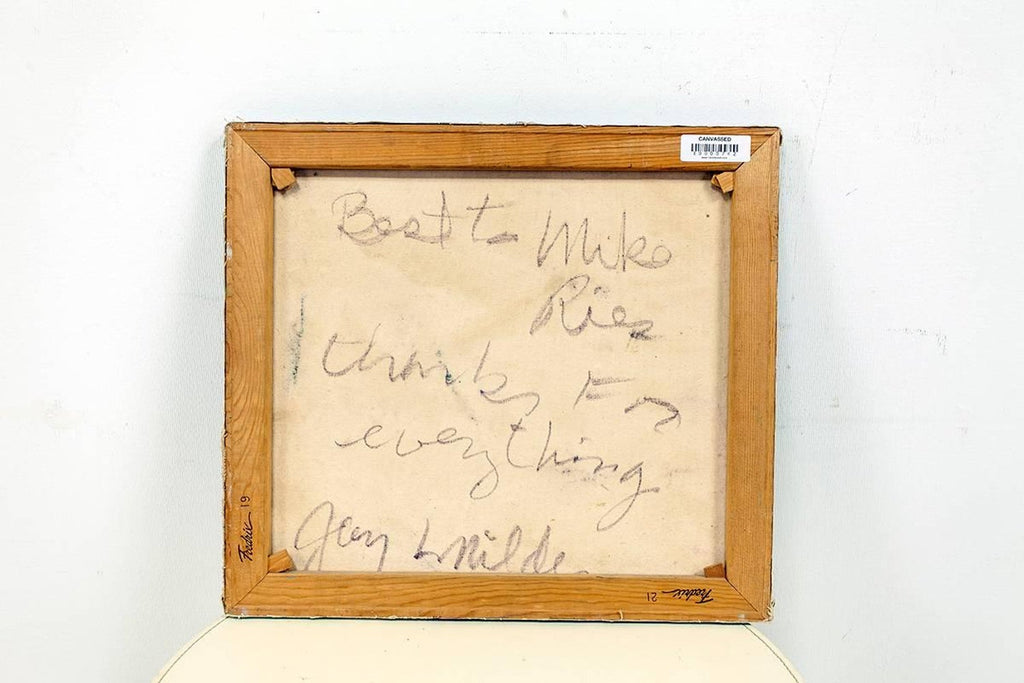 CANVASSED
Best to Mike
Ries
thanks for
everything
Jay Milder
Fredrix 19
Fredrix 21